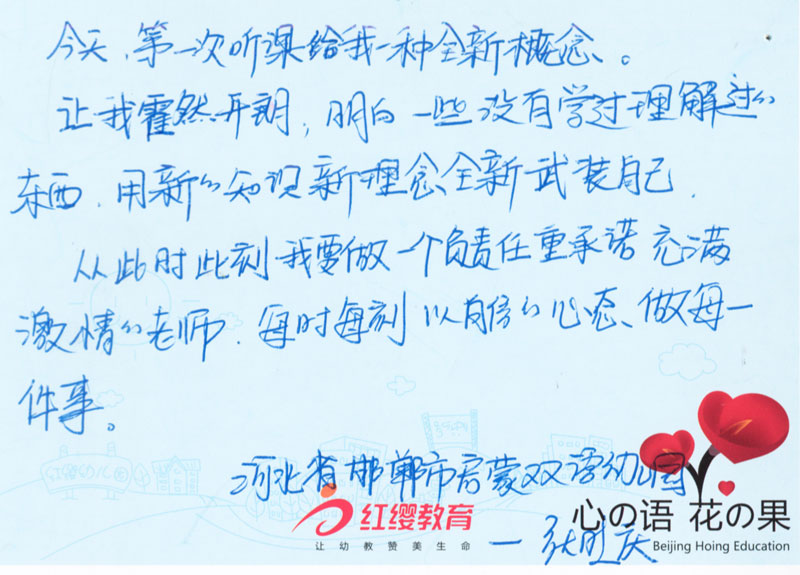 今天,第一次听课给我一种全新概念。
让我霍然开朗,明白一些没有学过理解过的
东西,用新的知识新理念全新武装自己.
从此时此刻我要做一个负责任重承诺充满
激情的老师.每时每刻以自信的心态、做每一
件事。
河北省邯郸市启蒙双语幼儿园
红缨教育 心の语 花の果
让幼教赞美生命 Beijing Hoing Education
红缨幼儿园